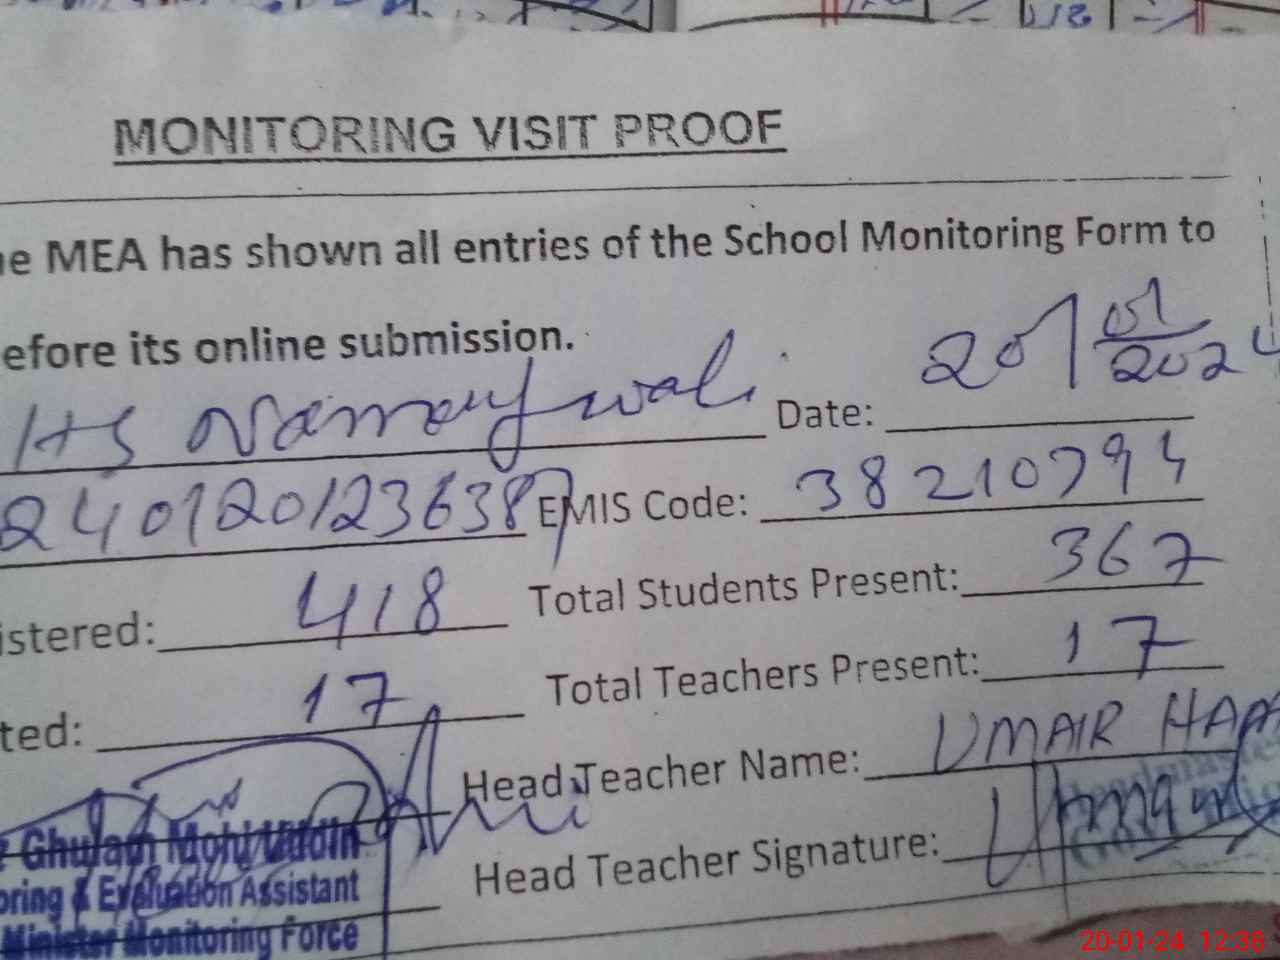 MONITORING VISIT PROOF
he MEA has shown all entries of the School Monitoring Form to
efore its online submission.
HS Date: 20/01/2024
2401201236387 EMIS Code: 38210794
istered: 418 Total Students Present: 367
ted: 17 Total Teachers Present: 17
Head Teacher Name: UMAIR
Ghulam Mohi Uddin
Head Teacher Signature:
oring & Evaluation Assistant
Minister Monitoring Force
20-01-24 12:38